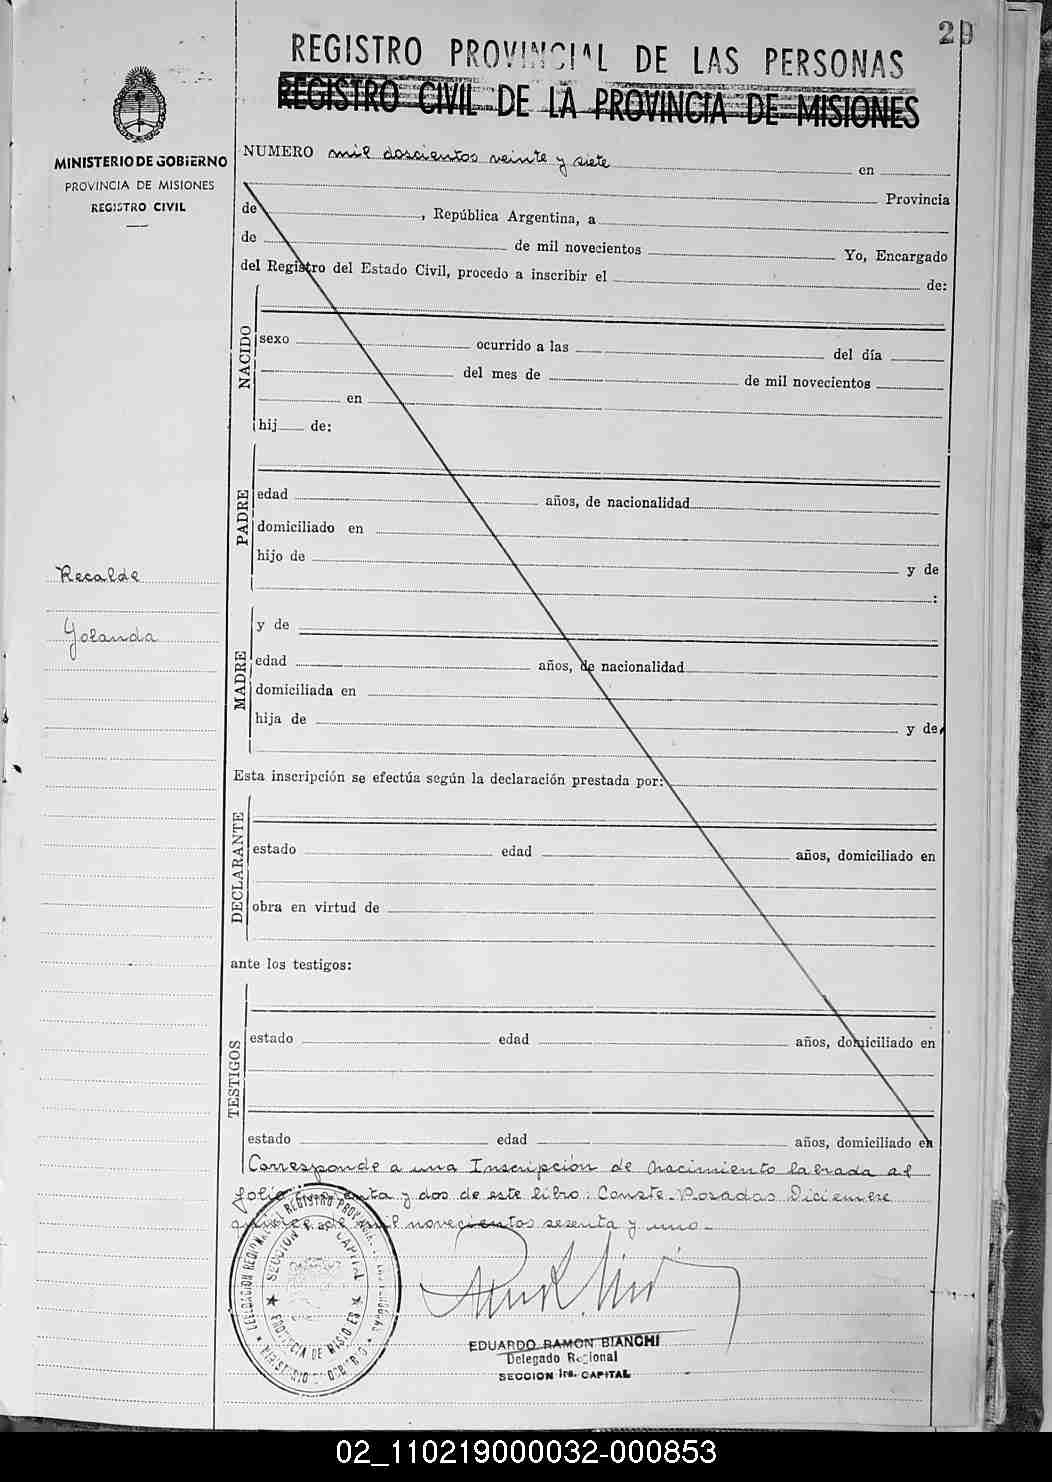 29
REGISTRO PROVINCIAL DE LAS PERSONAS
REGISTRO CIVIL DE LA PROVINCIA DE MISIONES
MINISTERIO DE GOBIERNO
PROVINCIA DE MISIONES
REGISTRO CIVIL
NUMERO mil doscientos veinte y siete en
Provincia
de , República Argentina, a
de de mil novecientos Yo, Encargado
del Registro del Estado Civil, procedo a inscribir el de:
NACIDO
sexo ocurrido a las del día
del mes de de mil novecientos
en
hij de:
PADRE
edad años, de nacionalidad
domiciliado en
hijo de y de
:
Recalde
Yolanda
MADRE
y de
edad años, de nacionalidad
domiciliada en
hija de y de
Esta inscripción se efectúa según la declaración prestada por:
DECLARANTE
estado edad años, domiciliado en
obra en virtud de
ante los testigos:
TESTIGOS
estado edad años, domiciliado en
estado edad años, domiciliado en
Corresponde a una Inscripción de Nacimiento labrada al
folio y dos de este libro: Conste. Posadas Diciembre
de mil novecientos sesenta y uno.-
DELEGACION REGIONAL REGISTRO
SECCION CAPITAL
PROVINCIA DE MISIONES
MINISTERIO DE GOBIERNO
EDUARDO RAMON BIANCHI
Delegado Regional
SECCION 1ra. CAPITAL
02_110219000032-000853